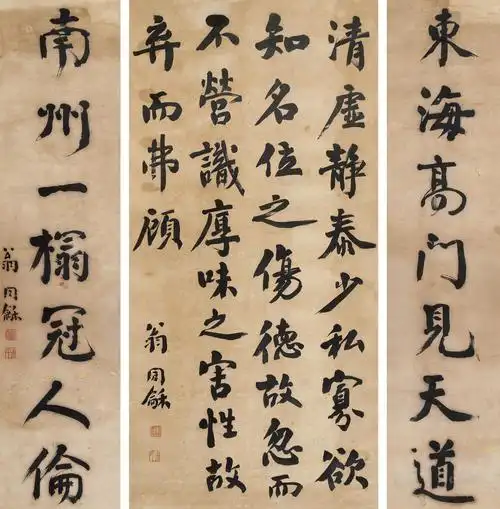 東海高門見天道
清虛靜泰少私寡欲
知名位之傷德故忽而
不營識厚味之害性故
弃而弗顧
翁同龢
南州一榻冠人倫
翁同龢